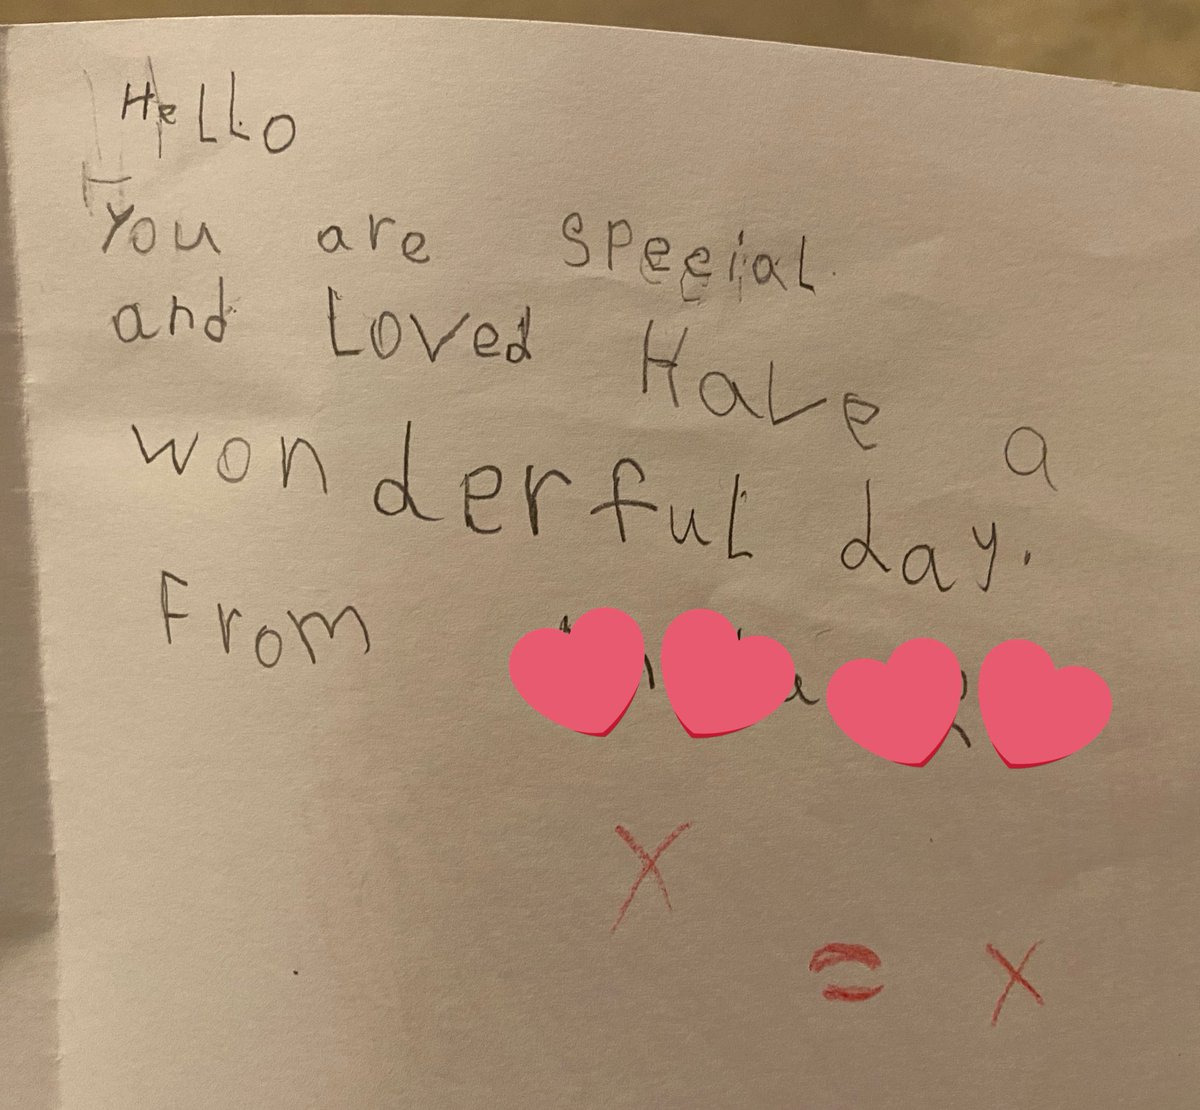 Hello
You are speeial
and Loved Have a
wonderful day.
From
X
= X